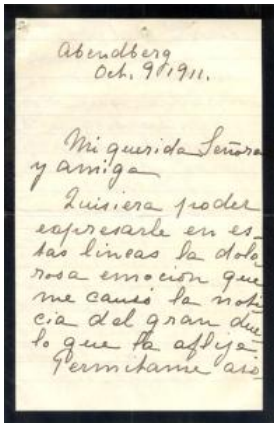 Abendberg
Oct. 9 1911.
Mi querida Señora
y amiga
Quisiera poder
expresarle en es-
tas lineas la dolo
rosa emoción que
me causó la noti
cia del gran due
lo que la aflije
Permitame aso